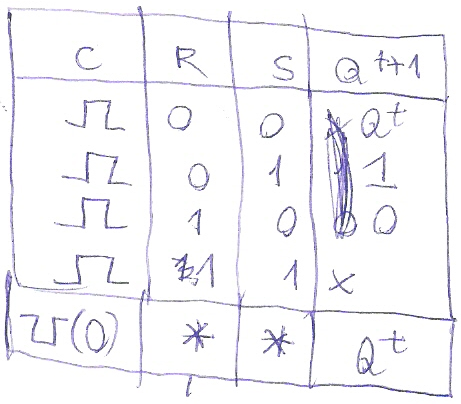 C R S Q^t+1
⎍ 0 0 Q^t
⎍ 0 1 1
⎍ 1 0 0
⎍ 1 1 x
⊔(0) * * Q^t